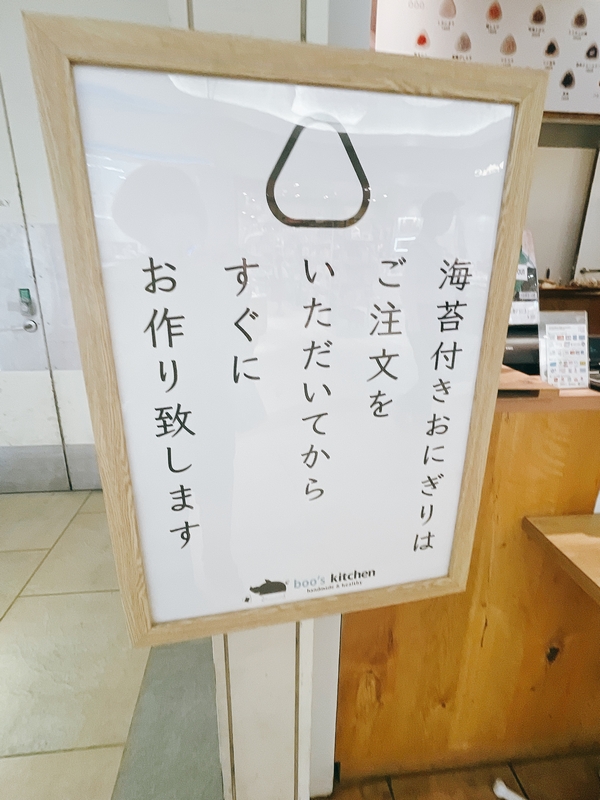 海苔付きおにぎりは
ご注文を
いただいてから
すぐに
お作り致します
boo's kitchen
handmade & healthy